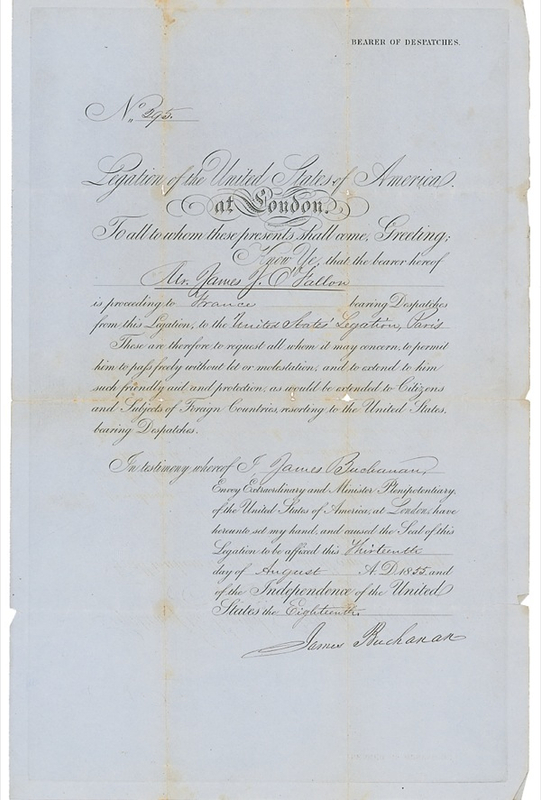 BEARER OF DESPATCHES.
No. 295.
Legation of the United States of America.
at London.
To all to whom these presents shall come, Greeting;
Know Ye, that the bearer hereof
Mr. James J. O'Fallon
is proceeding to France bearing Despatches
from this Legation, to the United States' Legation, Paris
These are therefore to request all whom it may concern, to permit
him to pass freely without let or molestation; and to extend to him
such friendly aid and protection, as would be extended to Citizens
and Subjects of Foreign Countries, resorting to the United States,
bearing Despatches.
In testimony whereof I, James Buchanan,
Envoy Extraordinary and Minister Plenipotentiary,
of the United States of America, at London; have
hereunto set my hand, and caused the Seal of this
Legation to be affixed this Thirteenth
day of August A.D. 1855, and
of the Independence of the United
States the Eighteenth.
James Buchanan